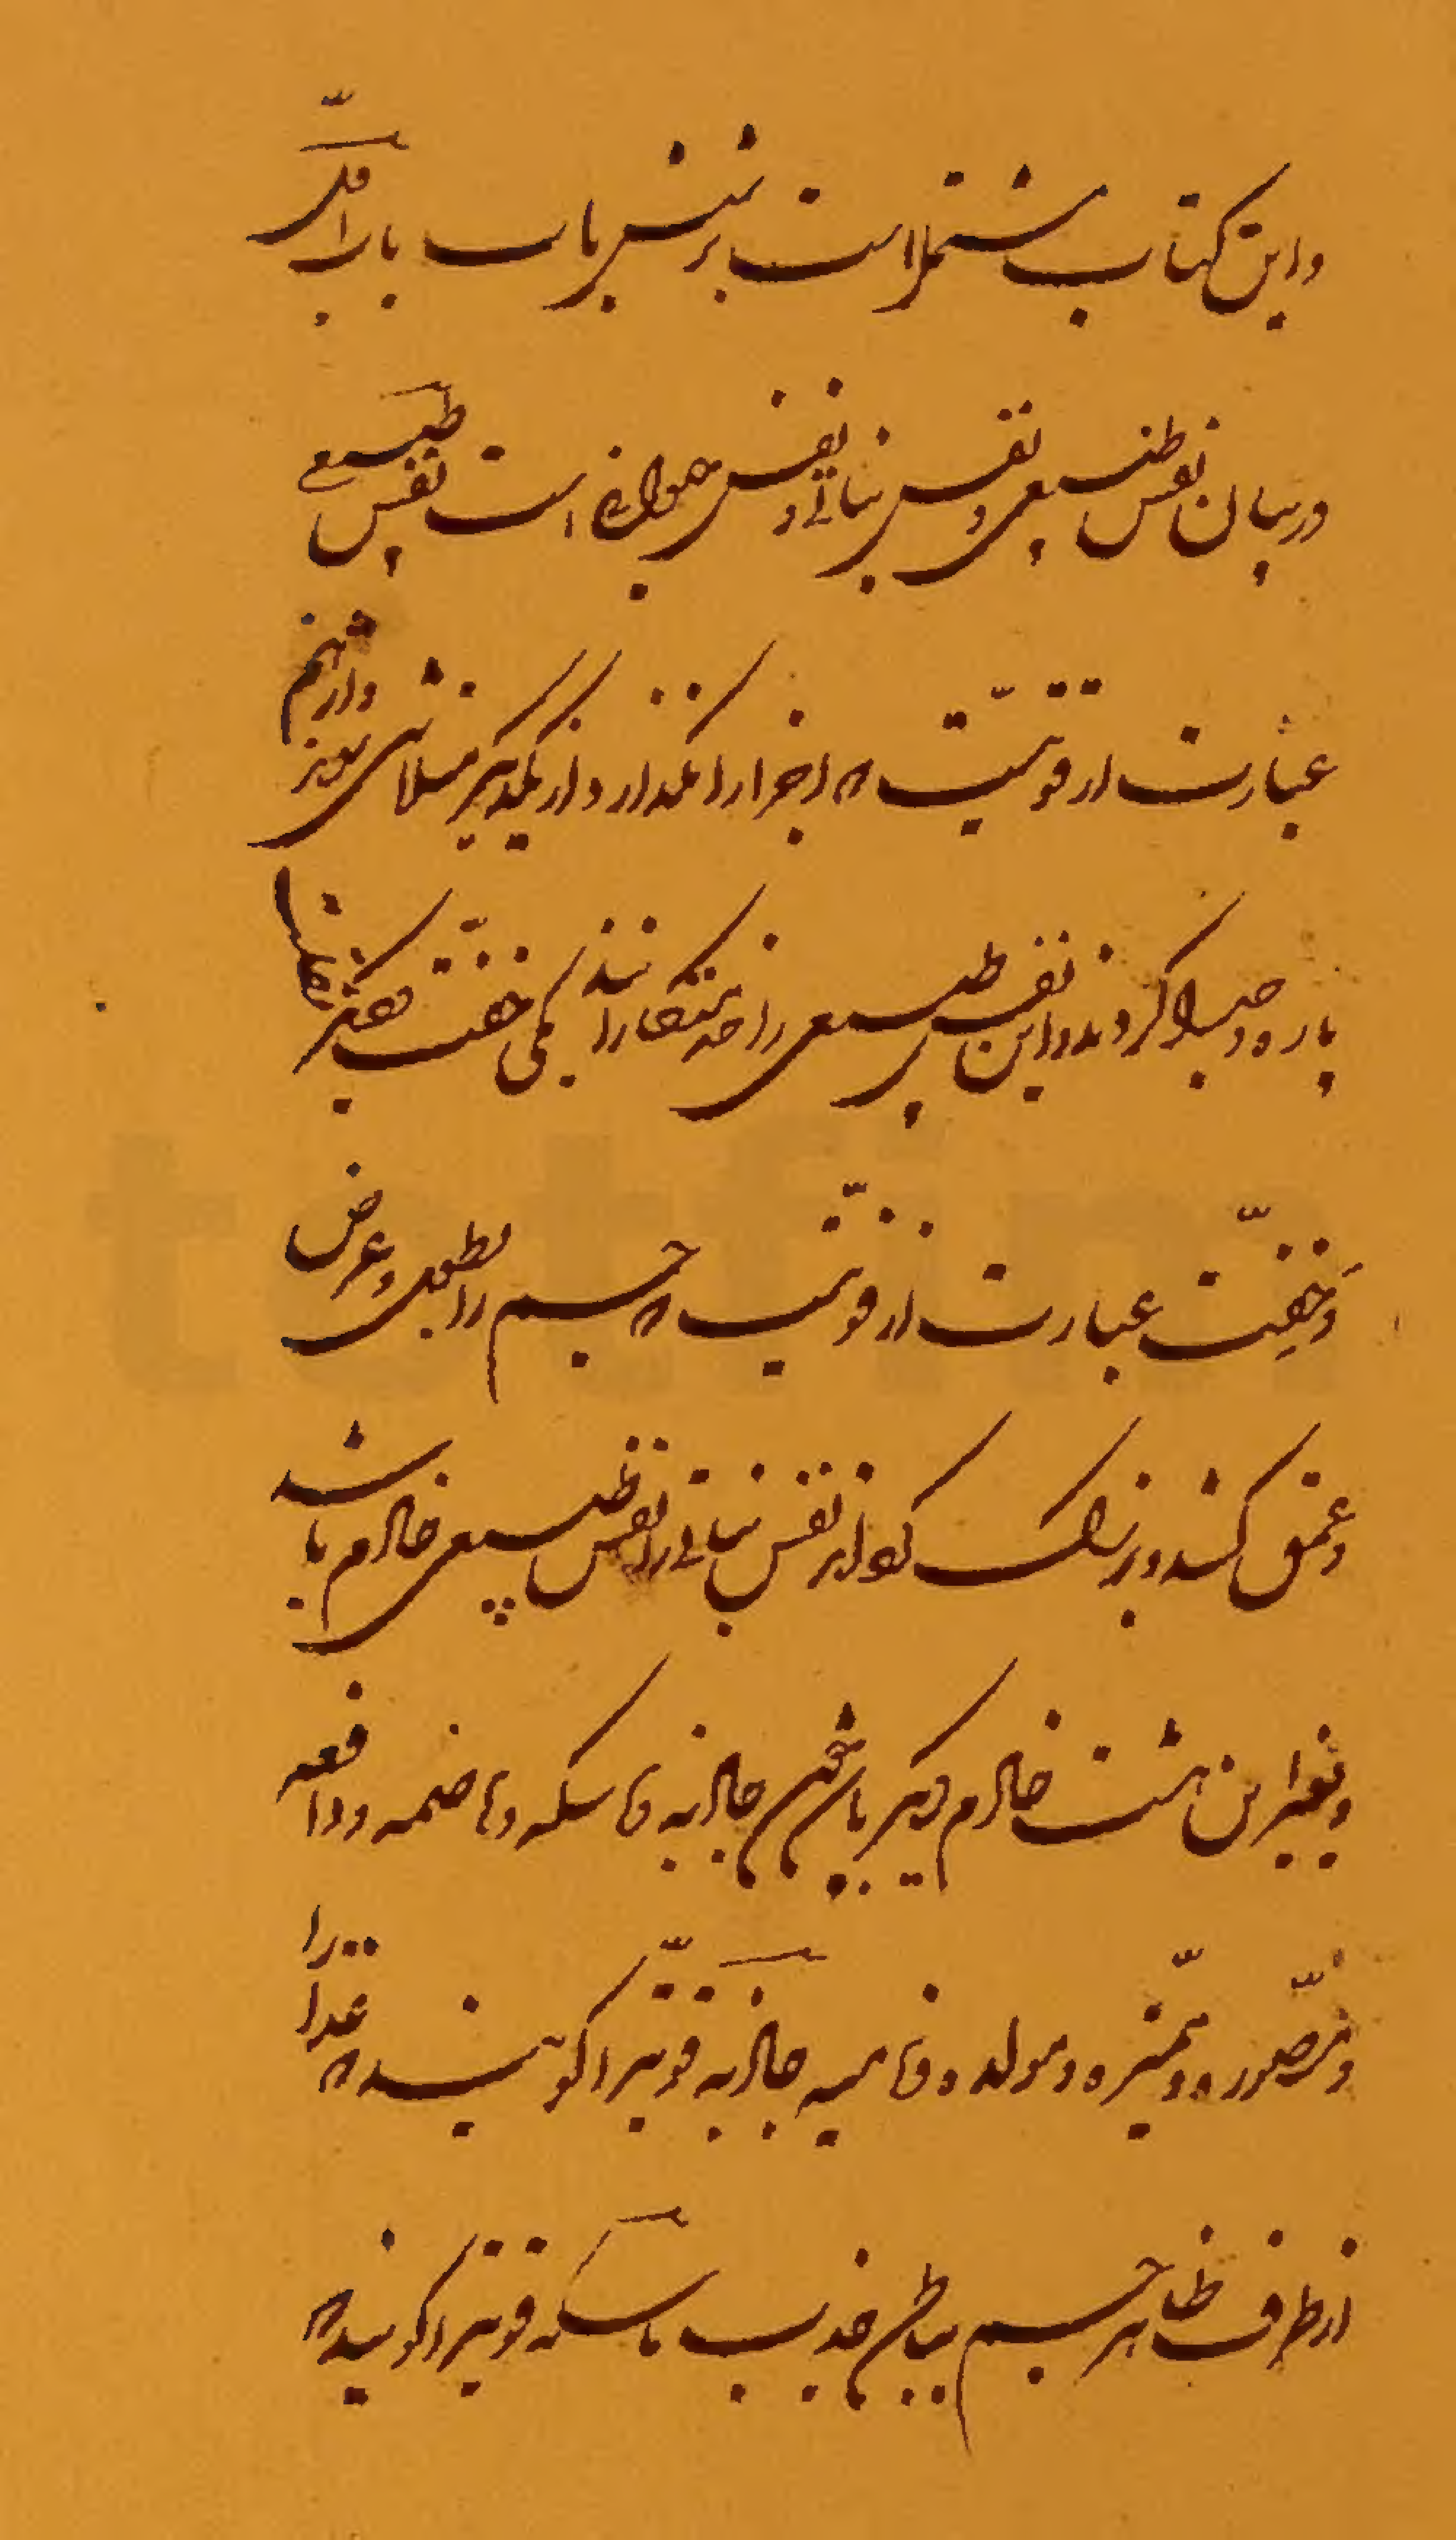 و این کتاب مشتمل است بر شش باب باب اوّل
در بیان نفس طبیعی و نفس نباتی و نفس حیوانی است نفس طبیعی
عبارت از قوّتیست که اجزا را نگذارد که از یکدیگر متلاشی شوند و از هم
پاره و جدا گردند و این نفس طبیعی را خدمتکارانند یکی خفّت دیگر
و خفّت عبارت از قوّتیست که جسم را بطول و عرض
و عمق کشد و بزرگ گرداند نفس نباتی را نفس طبیعی خادم باشد
و بغیر این هشت خادم دیگر باشدش جاذبه و ماسکه و هاضمه و دافعه
و مصوّره و ممیّزه و مولده و نامیه جاذبه قوّتیرا گویند که غذا را
از طرف ظاهر جسم بباطن جذب ماسکه قوّتیرا گویند که